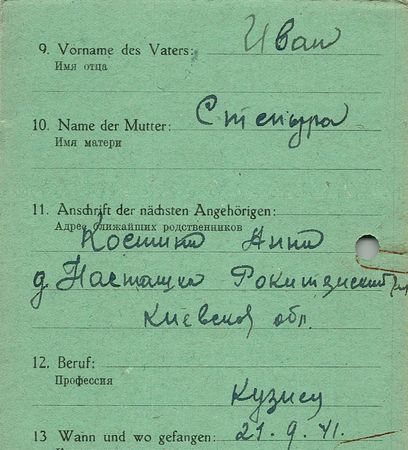 9. Vorname des Vaters: Иван
Имя отца
10. Name der Mutter: Степура
Имя матери
11. Anschrift der nächsten Angehörigen:
Адрес ближайших родственников
Костина Анна
д. Насташка Рокитянский
Киевской обл.
12. Beruf:
Профессия
Кузнец
13 Wann und wo gefangen: 21. 9. 41.